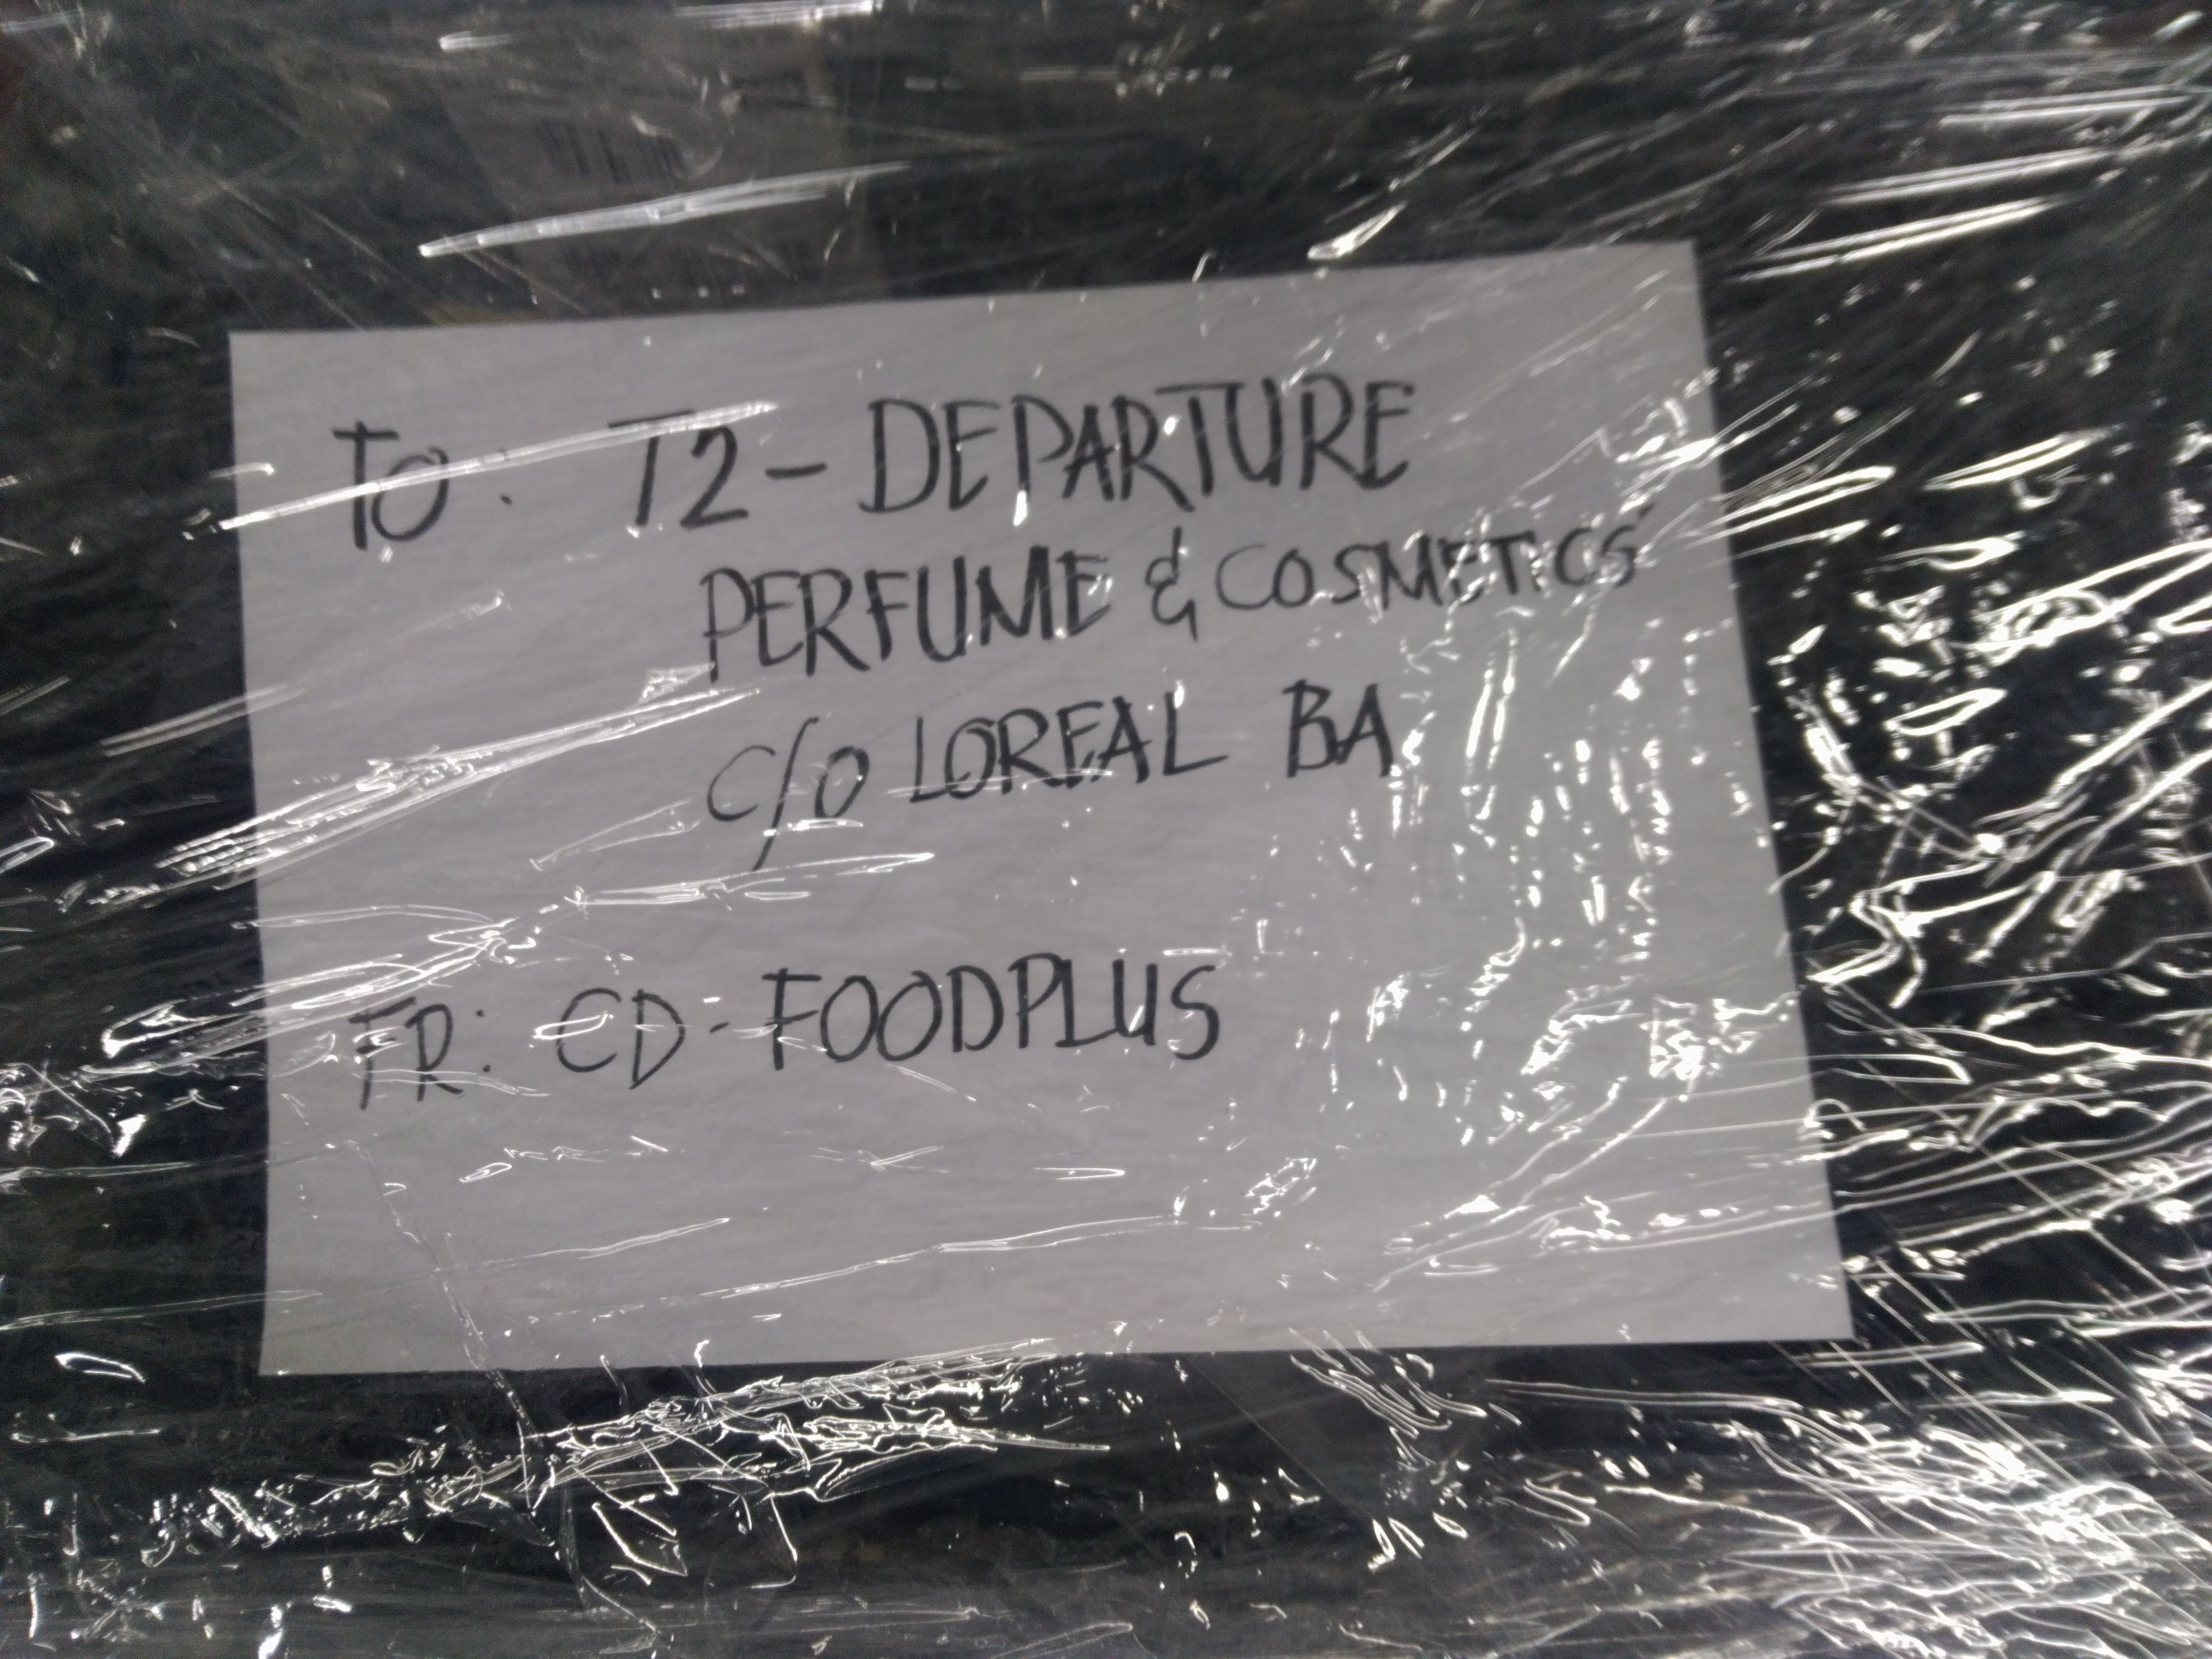 TO: T2- DEPARTURE
PERFUME & COSMETICS
C/O LOREAL BA
FR: CD - FOODPLUS